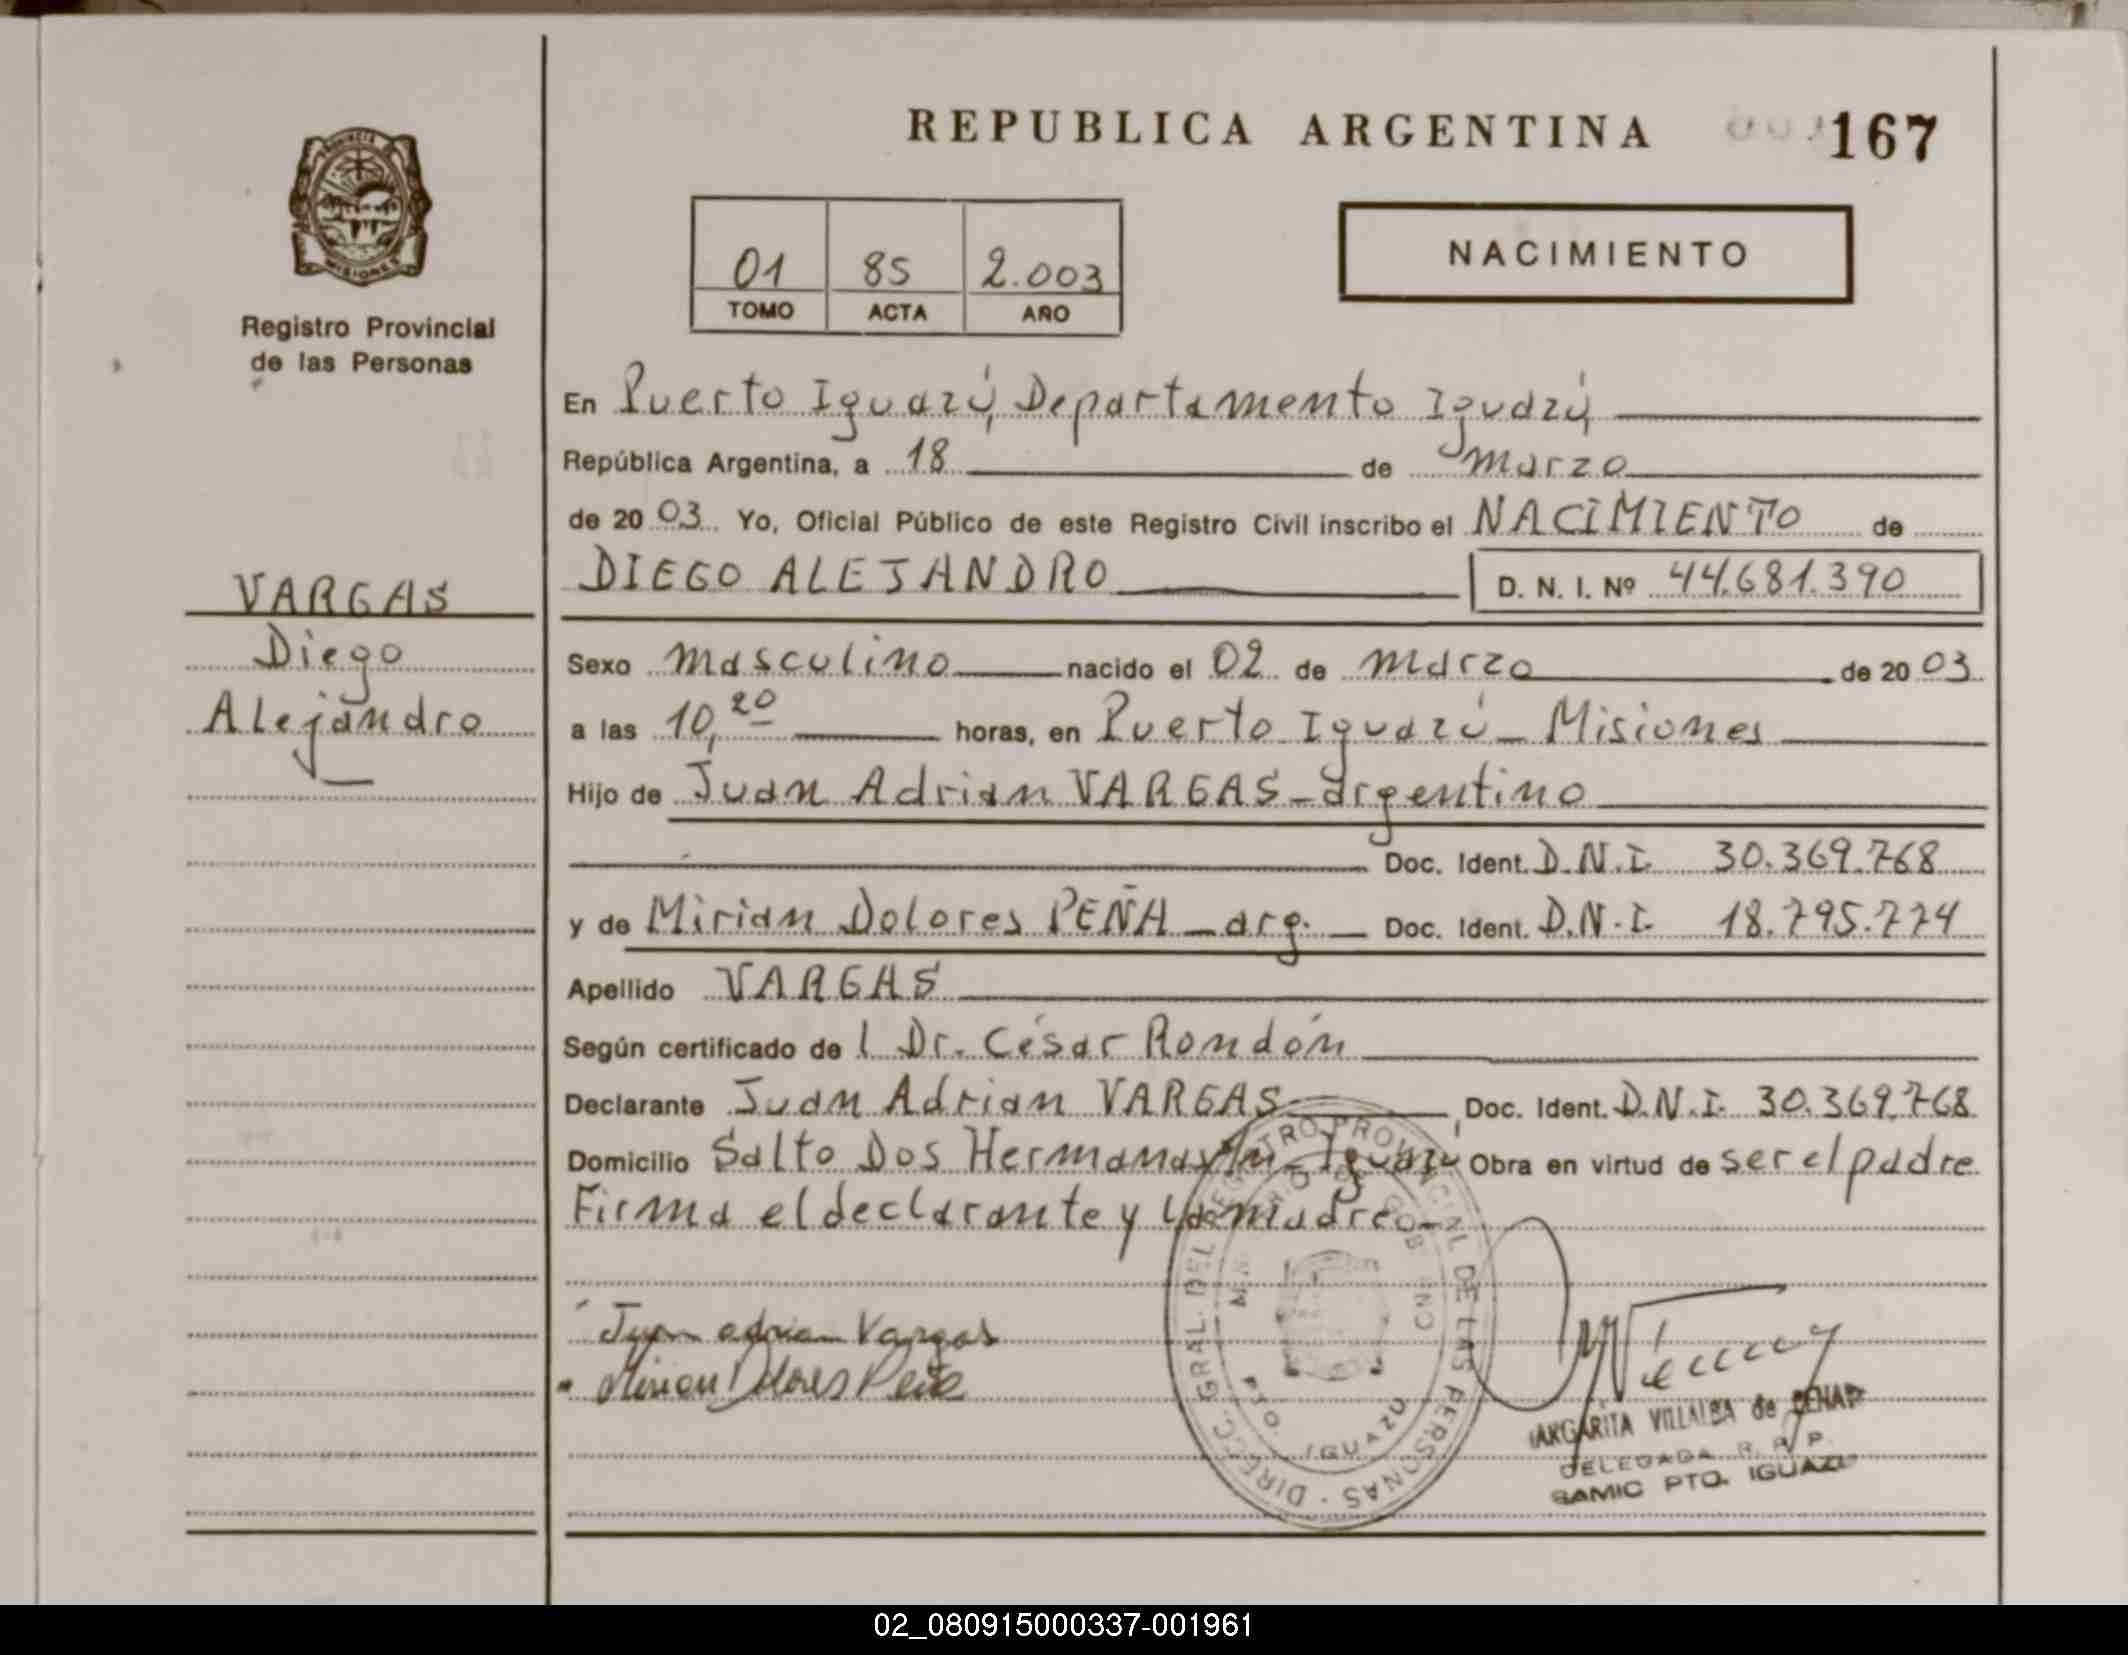 REPUBLICA ARGENTINA
167
PROVINCIA
MISIONES
Registro Provincial
de las Personas
01 85 2.003
TOMO ACTA AÑO
NACIMIENTO
En Puerto Iguazú, Departamento Iguazú,
República Argentina, a 18 de marzo
de 20 03 Yo, Oficial Público de este Registro Civil inscribo el NACIMIENTO de
DIEGO ALEJANDRO D. N. I. Nº 44.681.390
VARGAS
Diego
Alejandro
Sexo masculino nacido el 02 de marzo de 20 03
a las 10,20 horas, en Puerto Iguazú - Misiones
Hijo de Juan Adrian VARGAS - argentino
Doc. Ident. D.N.I. 30.369.768
y de Mirian Dolores PEÑA - arg. Doc. Ident. D.N.I. 18.795.774
Apellido VARGAS
Según certificado de l Dr. César Rondón
Declarante Juan Adrian VARGAS Doc. Ident. D.N.I. 30.369.768
Domicilio Salto Dos Hermanas Iguazú Obra en virtud de ser el padre
Firma el declarante y la madre.-
Juan adrian Vargas
Mirian Dolores Peña
DIRECC. GRAL. DEL REGISTRO PROVINCIAL DE LAS PERSONAS
PTO. IGUAZU
ARGARITA VILLALBA de
DELEGADA R. P. P.
SAMIC PTO. IGUAZU
02_080915000337-001961